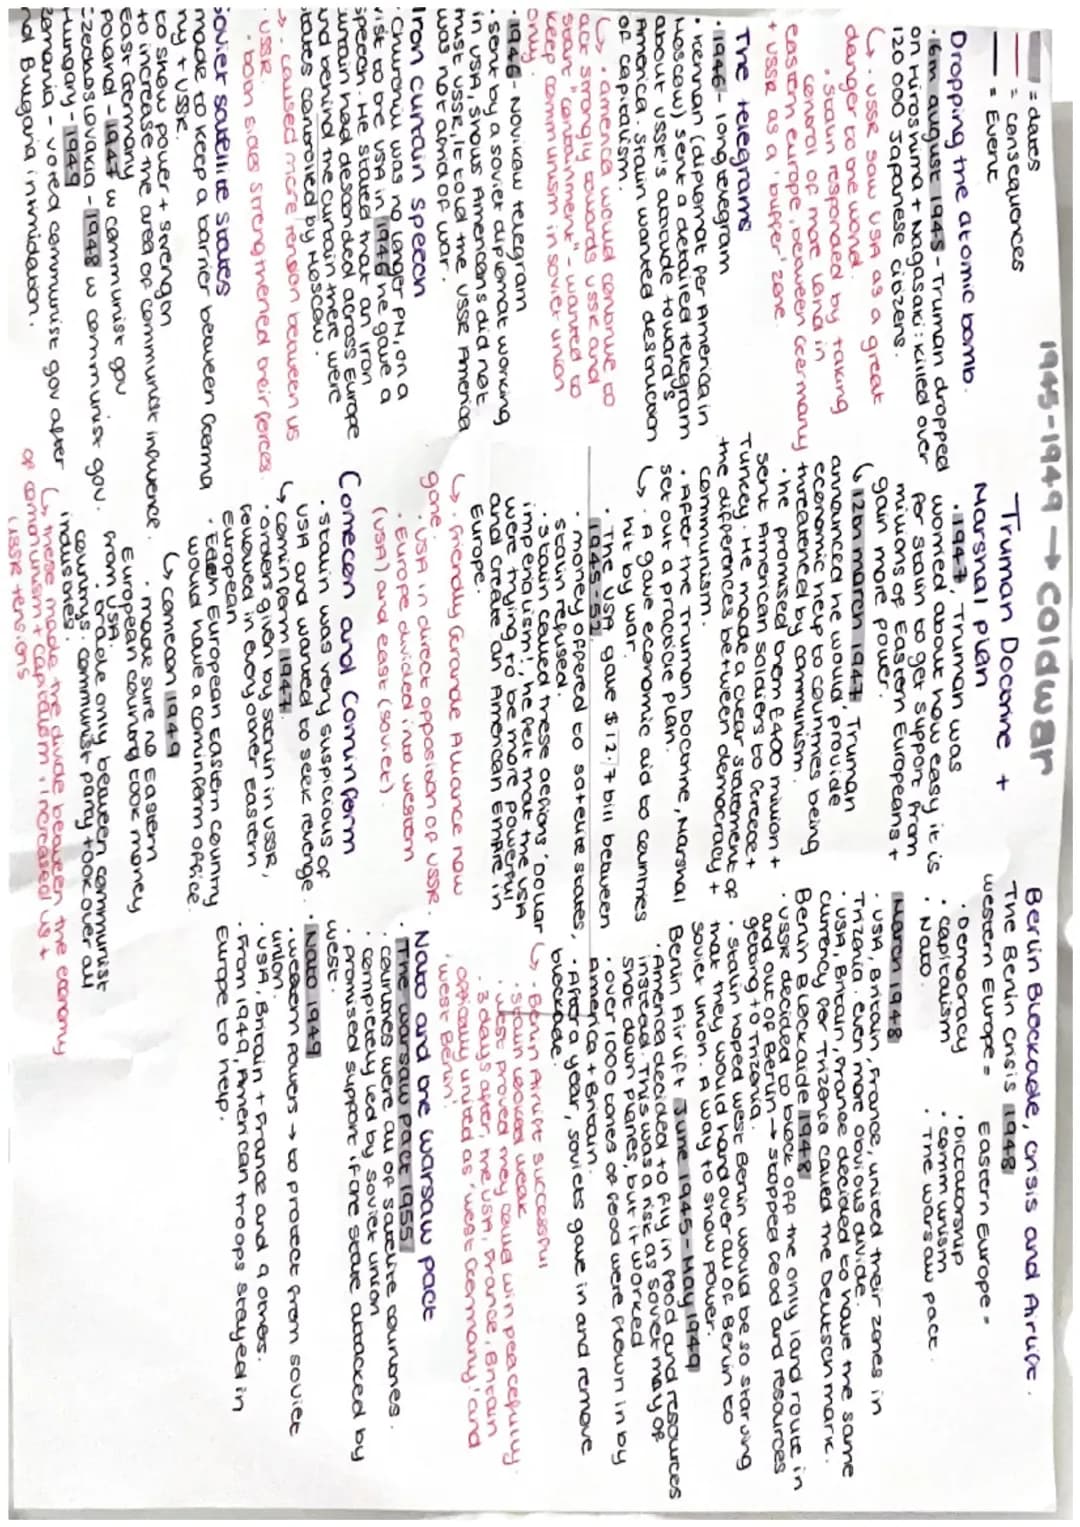 1945-1949 → coldwar
= dates
= consequences
= Event
Dropping the atomic bomb.
· 16th august 1945 - Truman dropped
on Hiroshima + Nagasaki: killed over
120 000 Japanese citizens.
↳ · USSR saw USA as a great
danger to the world.
· Stalin responded by taking
control of more land in
eastern europe, between Germany
+ USSR as a 'buffer' zone.
The telegrams
· 1946 - long telegram
· Kennan (diplomat per America in
Moscow) sent a detailed telegram
about USSR's attitude towards
America. Stalin wanted destruction
of capitalism.
↳ · america would continue to
act strongly towards USSR and
start "containment" - wanted to
keep communism in soviet union
only.
· 1946 - Novikov telegram
· sent by a soviet diplomat working
in USA, shows Americans did not
trust USSR, it told the USSR America
was not afraid of war.
Iron curtain speech
· Churchill was no longer PM, on a
visit to the USA in 1946 he gave a
speech. He stated that an Iron
curtain had descended across Europe
and behind the curtain there were
states controlled by Moscow.
→ caused more tension between US
USSR.
· both sides strengthened their forces
soviet satellite states
made to keep a barrier between Germa
ny + USSR.
to show power + strength
to increase the area of communist influence.
East Germany
Poland - 1947 w communist gov
Czechoslovakia - 1948 w communist gov.
Hungary - 1949
Romania - voted communist gov after
and Bulgaria intimidation.
↳ these made the divide between the economy
of communism + capitalism. increased US +
USSR tensions
Truman Doctrine +
Marshal plan
· 1947, Truman was
worried about how easy it is
for Stalin to get support from
millions of Eastern Europeans +
gain more power.
↳ 12th march 1947, Truman
announced he would provide
economic help to countries being
threatened by communism.
· he promised them £400 million +
sent American soldiers to Greece +
Turkey. He made a clear statement of
the differences between democracy +
communism.
· After the Truman Doctrine, Marshal
set out a practice plan.
↳ · it gave economic aid to countries
hit by war.
· The USA gave $12.7 bill between
1945-52
· money offered to satellite states,
Stalin refused.
· Stalin called these actions 'Dollar
imperialism', he felt that the USA
were trying to be more powerful
and create an American Empire in
Europe.
↳ · friendly Grande Alliance now
gone.
· USA in direct opposition of USSR.
· Europe divided into western
(USA) and east (soviet).
Comecon and Cominform
· Stalin was very suspicious of
USA and wanted to seek revenge.
↳ cominform 1947.
· orders given by Stalin in USSR,
followed in every other eastern
European
· Each European Eastern country
would have a cominform office.
↳ comecon 1949
· made sure no Eastern
European country took money
from USA.
· trade only between communist
countrys. communist party took over all
industries.
Berlin Blockade, crisis and Airlift.
The Berlin crisis 1948
western Europe =
· Democracy
· capitalism
· Nato.
Eastern Europe =
· Dictatorship
· communism
· The warsaw pact.
March 1948
· USA, Britain, France, united their zones in
Trizonia. even more obvious divide.
· USA, Britain, France decided to have the same
currency for Trizonia called the Deutschmark.
Berlin Blockaide 1948
· USSR decided to block off the only land route in
and out of Berlin → stopped food and resources
getting to Trizonia.
· Stalin hoped west Berlin would be so starving
that they would hand over all of Berlin to
soviet union. A way to show power.
Berlin Airlift June 1945 - May 1949
· America decided to fly in food and resources
instead. This was a risk as soviet may of
shot down planes, but it worked
· over 1000 tones of food were flown in by
America + Britain.
· After a year, soviets gave in and remove
blockade.
↳ · Berlin Airlift successful
· Stalin looked weak
· west proved they could win peacefully.
· 3 days after, the USA, France, Britain
officially united as 'west Germany' and
'west Berlin'.
Nato and the warsaw pact
· The warsaw pact 1955
· countries were all of satellite countries.
· completely led by soviet union
· promised support if one state attacked by
west.
· Nato 1949
· western powers → to protect from soviet
union.
· USA, Britain + France and 9 others.
· From 1949, American troops stayed in
Europe to help.